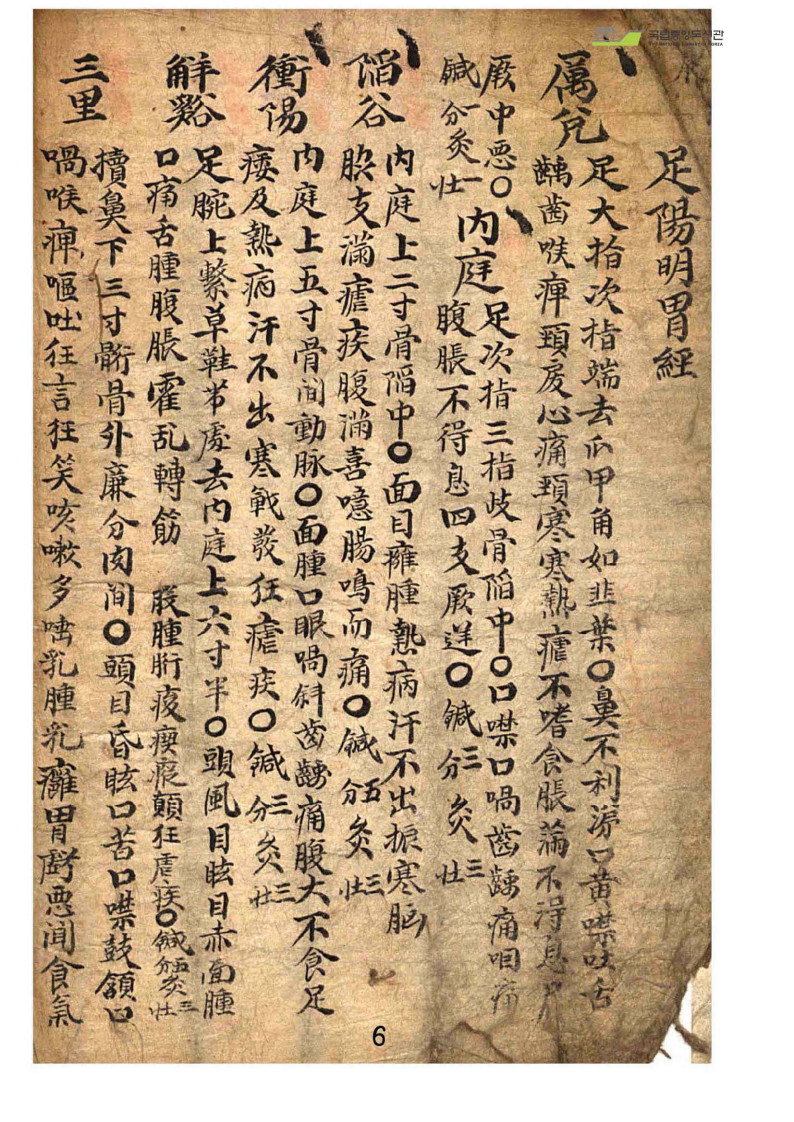 국립중앙도서관
THE NATIONAL LIBRARY OF KOREA
足陽明胃經
厲兌
足大指次指端去爪甲角如韭葉〇鼻不利涕口黃噤吐舌
齲齒喉痺頸 心痛頸寒寒熱瘧不嗜食脹滿不得息
厥中惡〇
鍼一分灸一壯
內庭
足次指三指歧骨陷中〇口噤口喎齒齲痛咽痛
腹脹不得息四支厥逆〇鍼三分灸三壯
陷谷
内庭上二寸骨陷中〇面目癰腫熱病汗不出振寒
支滿瘧疾腹滿喜噫腸鳴而痛〇鍼五分灸三壯
衝陽
内庭上五寸骨間動脉〇面腫口眼喎斜齒齲痛腹大不食足
痿及熱病汗不出寒戰發狂瘧疾〇鍼三分灸三壯
觧谿
足腕上繫草鞋帶處去内庭上六寸半〇頭風目眩目赤面腫
口痛舌腫腹脹霍乱轉筋 股腫胻 瘈瘲顛狂瘧疾〇鍼五分灸三壯
三里
犢鼻下三寸䯒骨外廉分肉間〇頭目昏眩口苦口噤鼓頷口
喎喉痺嘔吐狂言狂笑咳嗽多唾乳腫乳癰胃 惡聞食氣
6